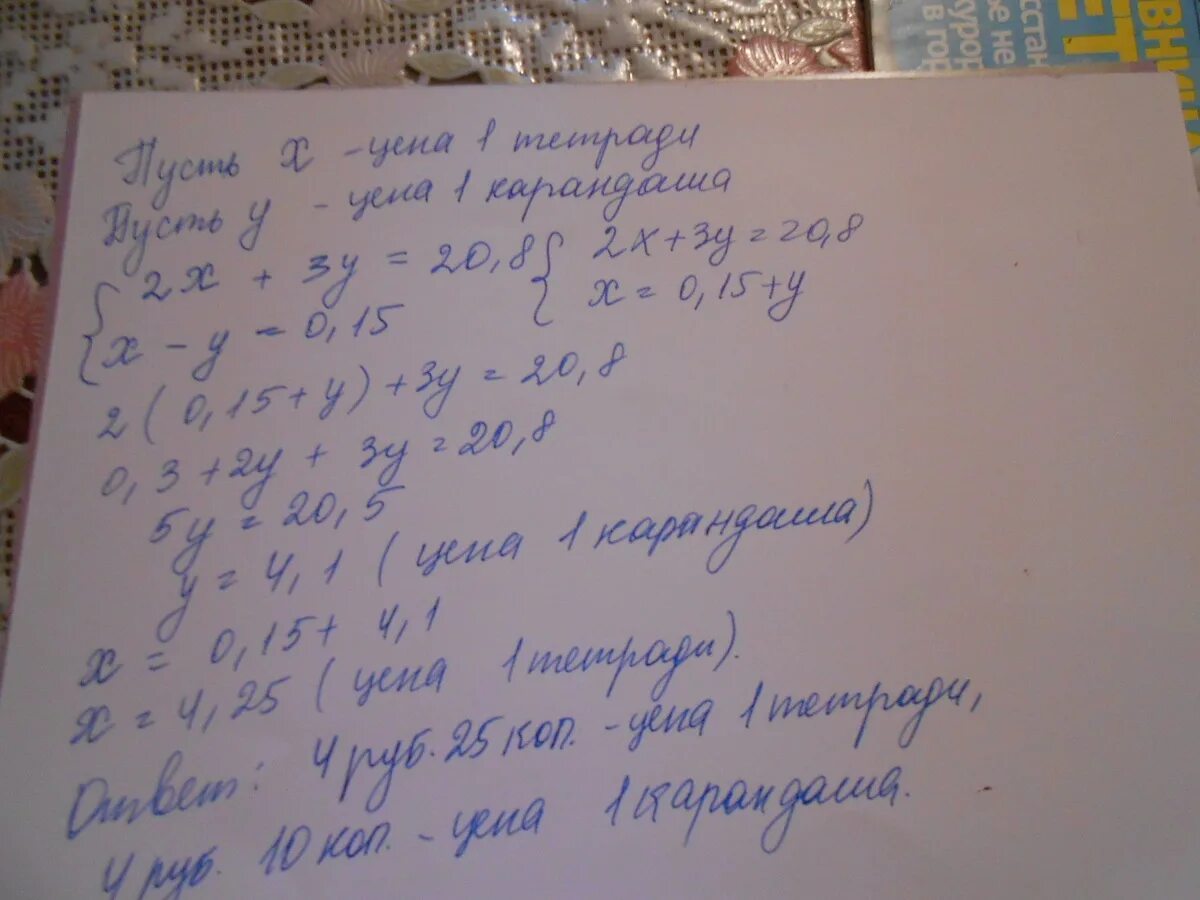 Пусть x - цена 1 тетради
Пусть y - цена 1 карандаша
{ 2x + 3y = 20,8 { 2x + 3y = 20,8
x - y = 0,15 x = 0,15 + y
2(0,15 + y) + 3y = 20,8
0,3 + 2y + 3y = 20,8
5y = 20,5
y = 4,1 (цена 1 карандаша)
x = 0,15 + 4,1
x = 4,25 (цена 1 тетради).
Ответ: 4 руб. 25 коп. - цена 1 тетради,
4 руб. 10 коп. - цена 1 карандаша.